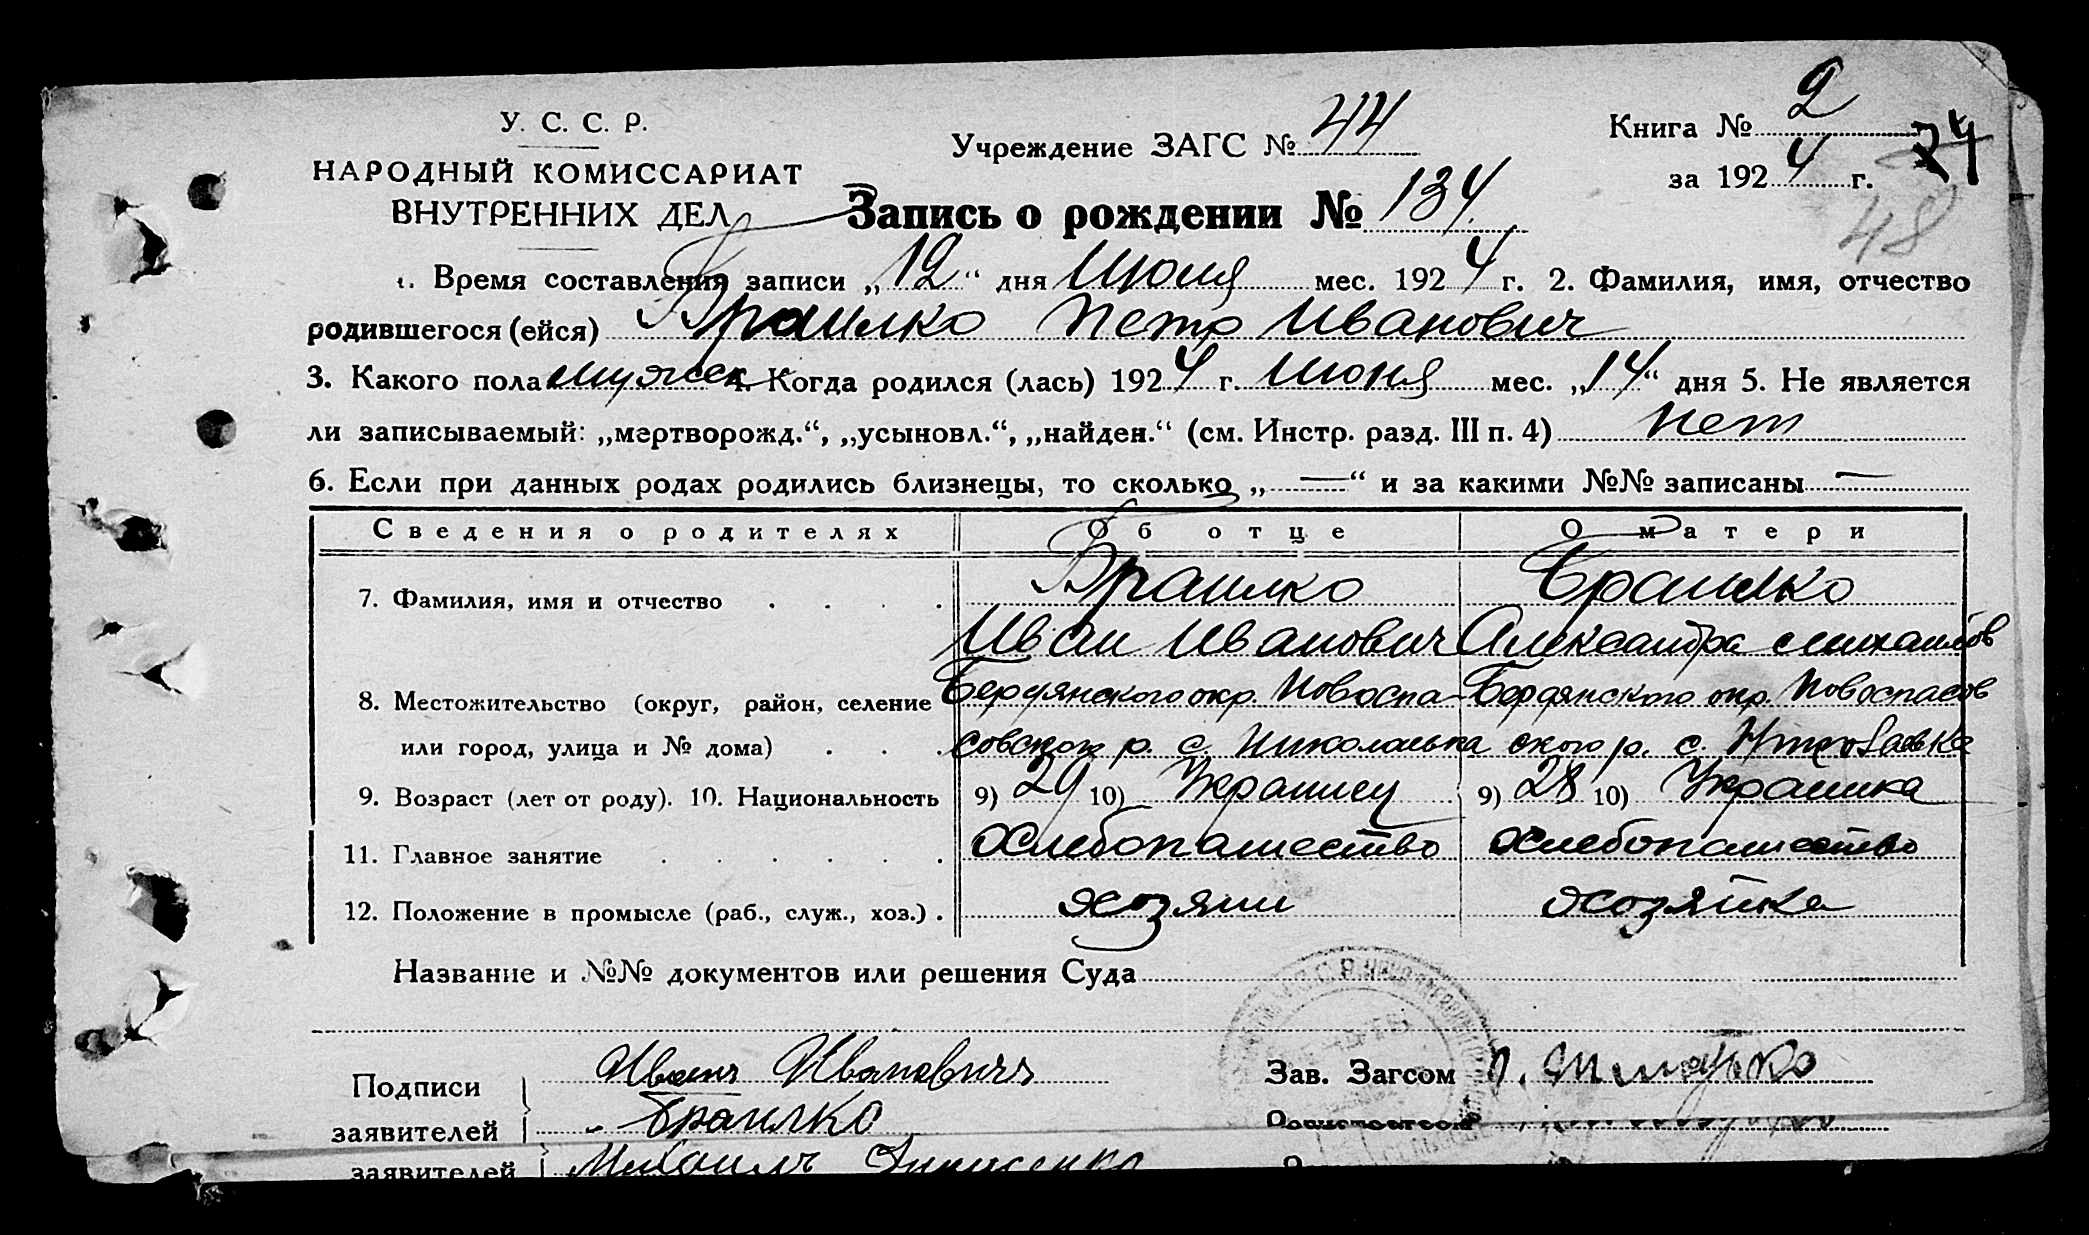 У. С. С. Р.
НАРОДНЫЙ КОМИССАРИАТ
ВНУТРЕННИХ ДЕЛ
Учреждение ЗАГС № 44
Книга № 2
за 1924 г.
24
48
Запись о рождении № 134
1. Время составления записи „12“ дня Июля мес. 1924 г. 2. Фамилия, имя, отчество
родившегося (ейся) Браилко Петр Иванович
3. Какого пола мужск. 4. Когда родился (лась) 1924 г. Июня мес. „14“ дня 5. Не является
ли записываемый: „мертворожд.“, „усыновл.“, „найден.“ (см. Инстр. разд. III п. 4) нет
6. Если при данных родах родились близнецы, то сколько „—“ и за какими №№ записаны —
Сведения о родителях Об отце О матери
7. Фамилия, имя и отчество . . . . Браилко Браилко
Иван Иванович Александра Михайлов
8. Местожительство (округ, район, селение Бердянского окр. Новоспа- Бердянского окр. Новоспасов
или город, улица и № дома) . . . р. с. ского р. с.
9. Возраст (лет от роду). 10. Национальность 9) 29 10) Украинец 9) 28 10) Украинка
11. Главное занятие . . . . . . Хлебопашество Хлебопашество
12. Положение в промысле (раб., служ., хоз.) . хозяин хозяйка
Название и №№ документов или решения Суда
Подписи Иванъ Ивановичъ
заявителей Браилко
Зав. Загсом
заявителей Михаилъ